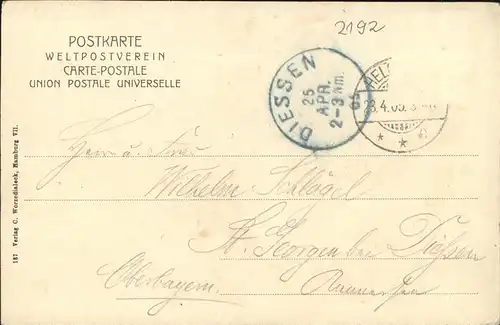 2192
POSTKARTE
WELTPOSTVEREIN
CARTE-POSTALE
UNION POSTALE UNIVERSELLE
DIESSEN
25
APR.
2-3 Nm.
05
23.4.05.
* *
Herrn u. Frau
Wilhelm Schlägel
St. Georgen bei Diessen
Oberbayern. Ammersee
187 Verlag C. Worzedialeck, Hamburg VII.